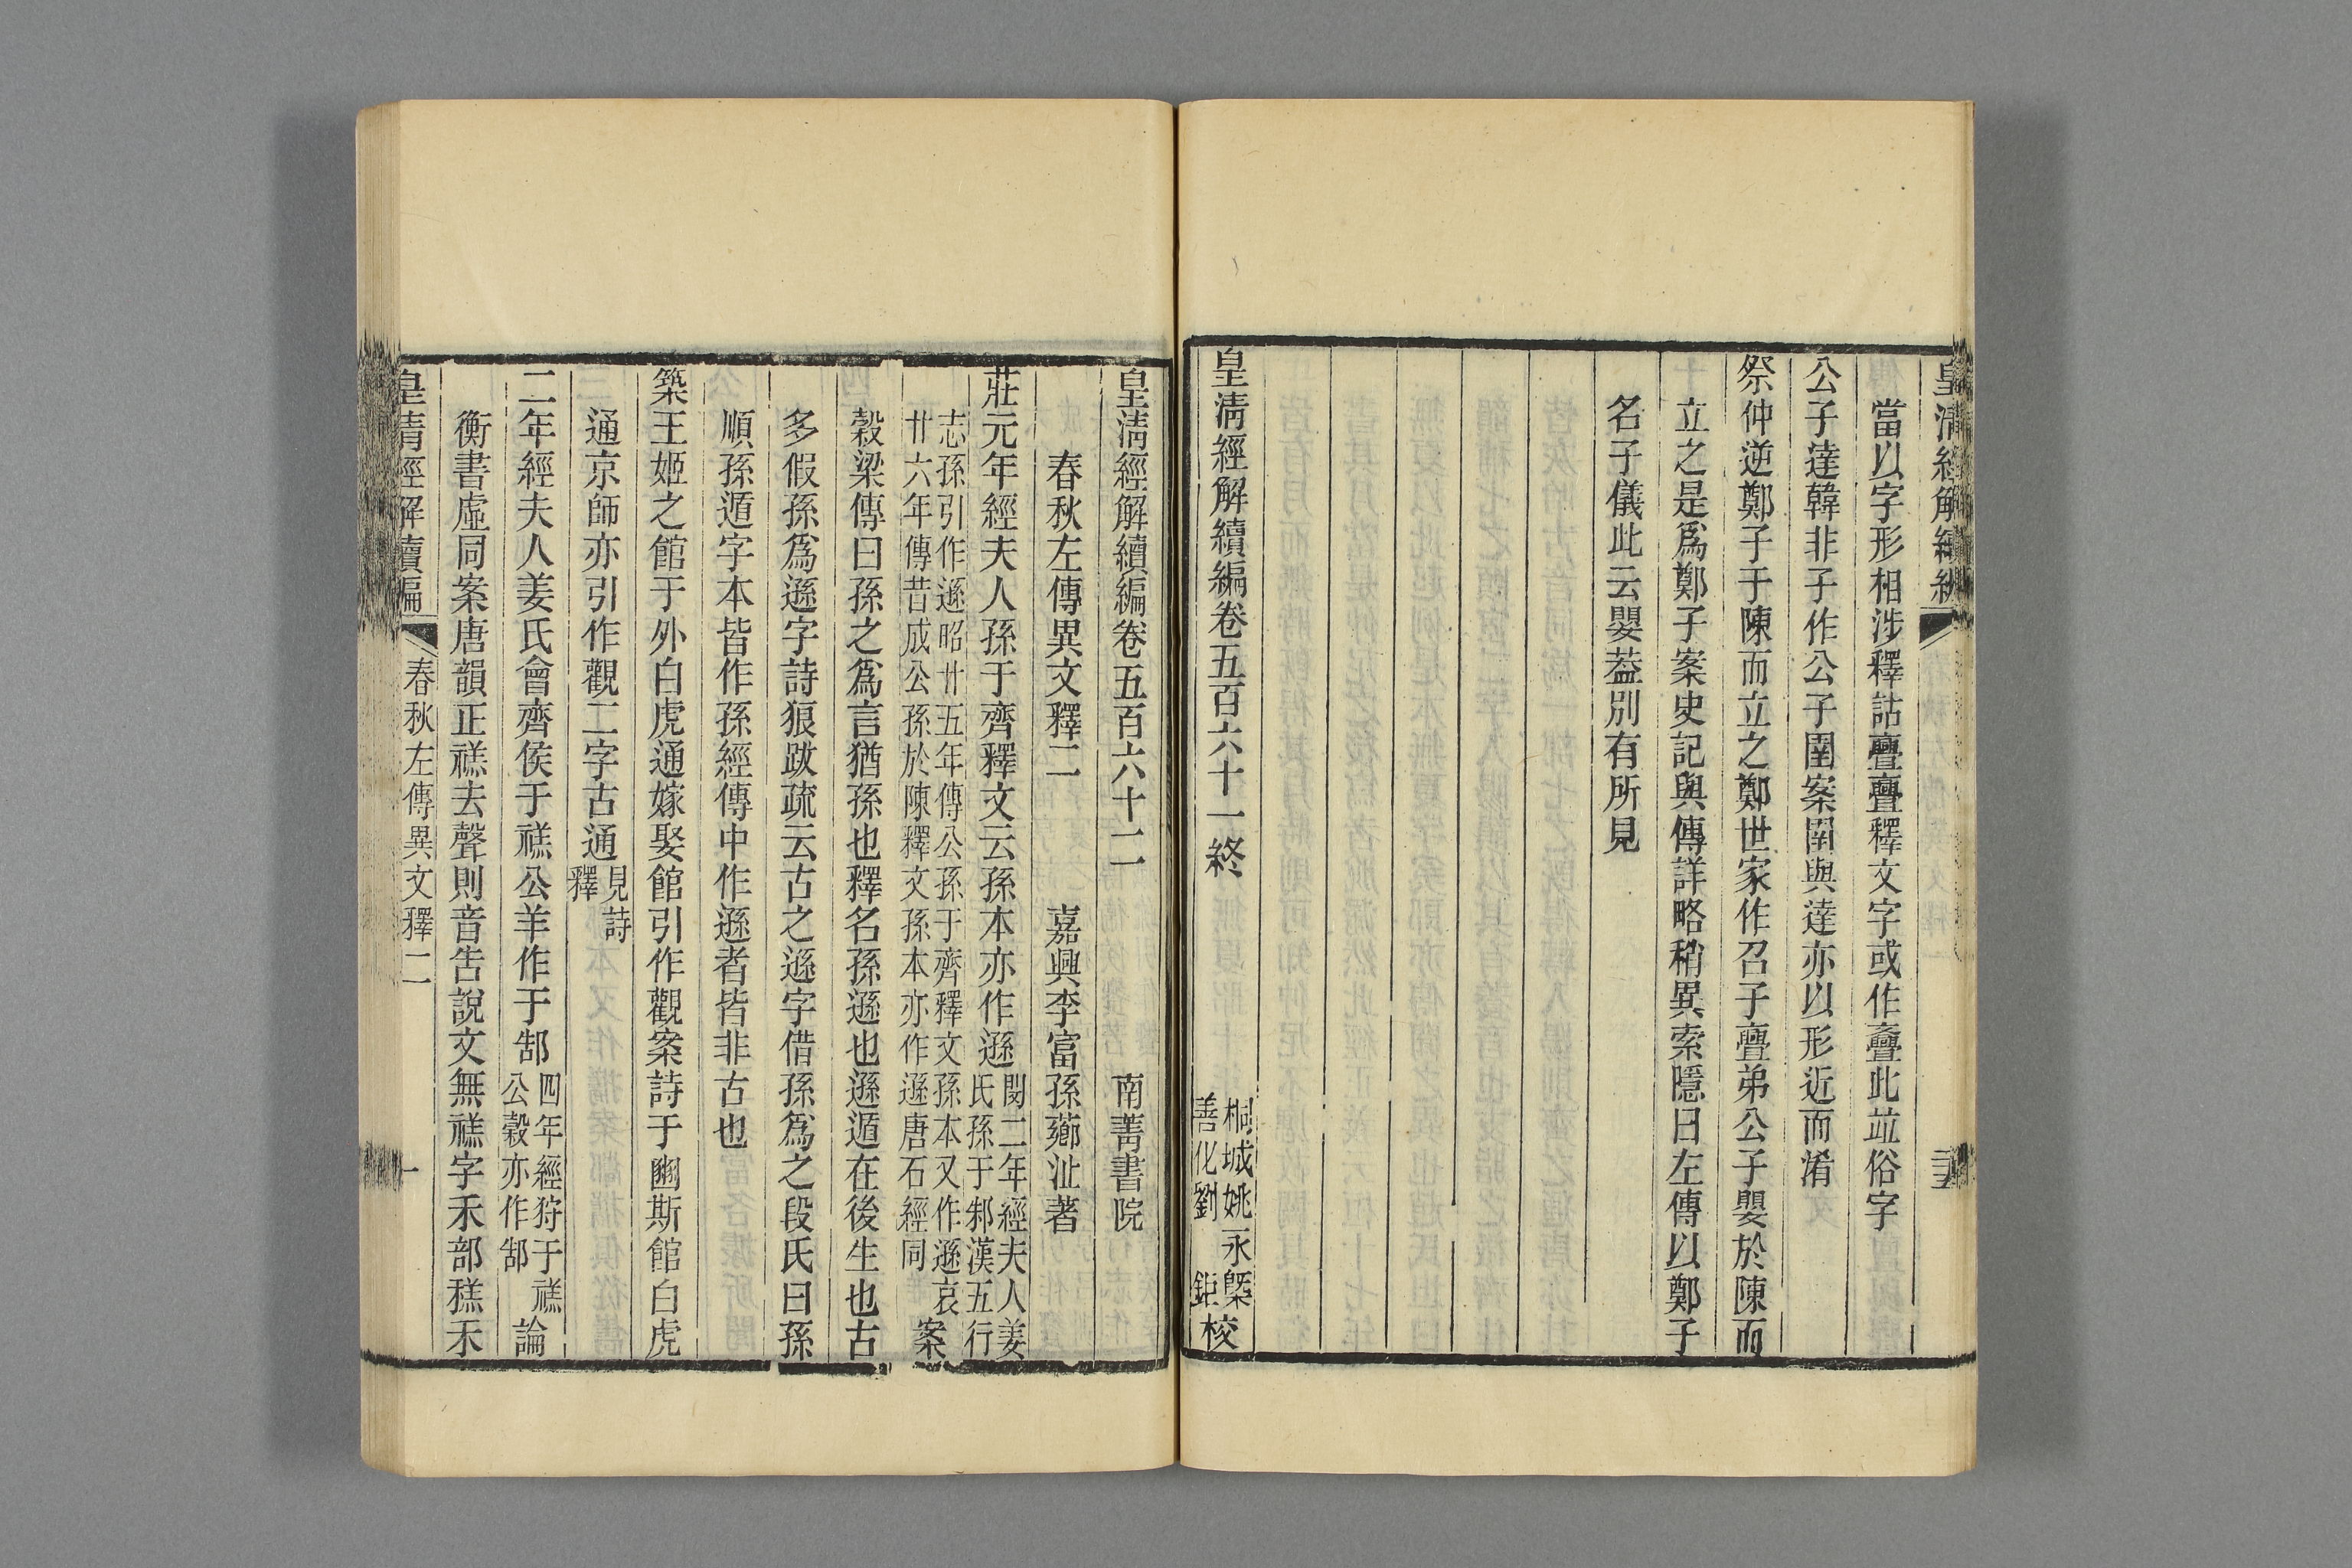 皇清經解續編
當以字形相涉釋詁亹亹釋文字或作斖此竝俗字
公子達韓非子作公子圉案圉與達亦以形近而淆
祭仲逆鄭子于陳而立之鄭世家作召子亹弟公子嬰於陳而
立之是爲鄭子案史記與傳詳略稍異索隱曰左傳以鄭子
名子儀此云嬰葢別有所見
皇清經解續編卷五百六十一終
桐城姚永㮣
善化劉鉅
校
皇清經解續編卷五百六十二
南菁書院
春秋左傳異文釋二
嘉興李富孫薌沚著
莊元年經夫人孫于齊釋文云孫本亦作遜
閔二年經夫人姜
氏孫于邾漢五行
志孫引作遜昭廿五年傳公孫于齊釋文孫本又作遜哀
廿六年傳昔成公孫於陳釋文孫本亦作遜唐石經同
案
穀梁傳曰孫之爲言猶孫也釋名孫遜也遜遁在後生也古
多假孫爲遜字詩狼跋疏云古之遜字借孫爲之段氏曰孫
順孫遁字本皆作孫經傳中作遜者皆非古也
築王姬之館于外白虎通嫁娶館引作觀案詩于豳斯館白虎
通京師亦引作觀二字古通
見詩
釋
二年經夫人姜氏會齊侯于禚公羊作于郜
四年經狩于禚
公穀亦作郜
論
衡書虛同案唐韻正禚去聲則音告說文無禚字禾部䅵禾
皇清經解續編
春秋左傳異文釋二
一